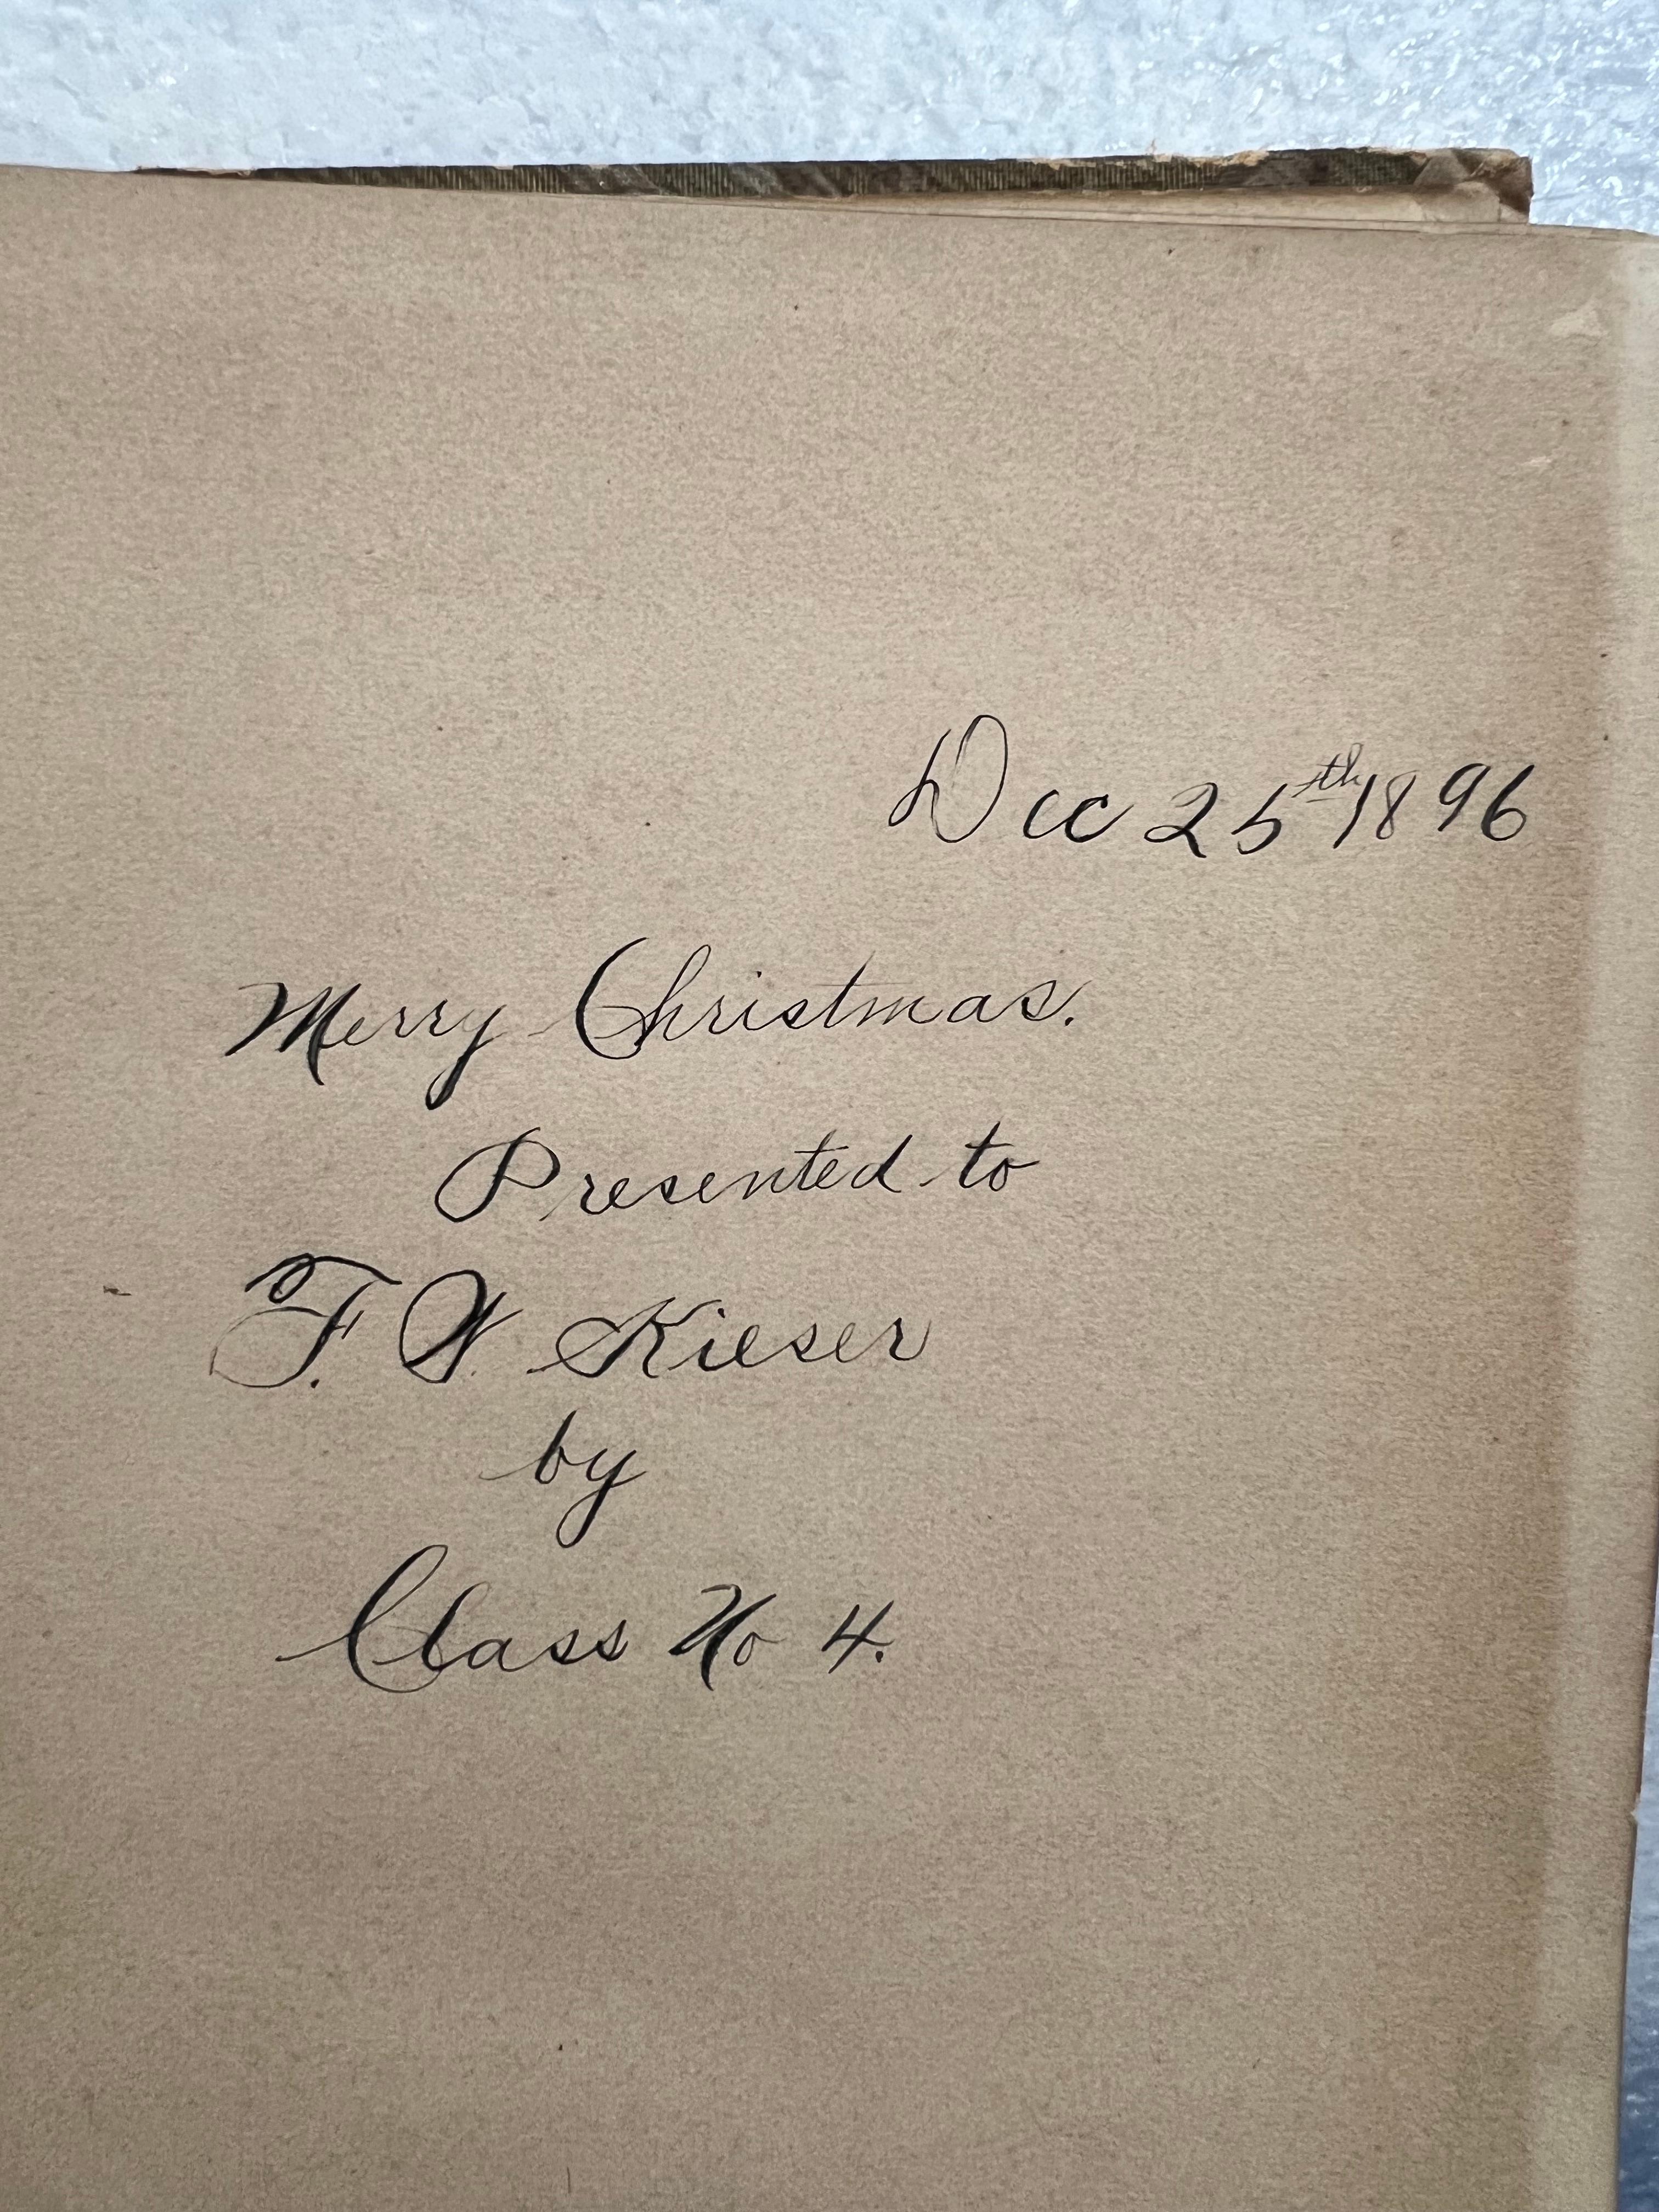 Dec 25th 1896
Merry Christmas.
Presented to
F. W. Kieser
by
Class No 4.